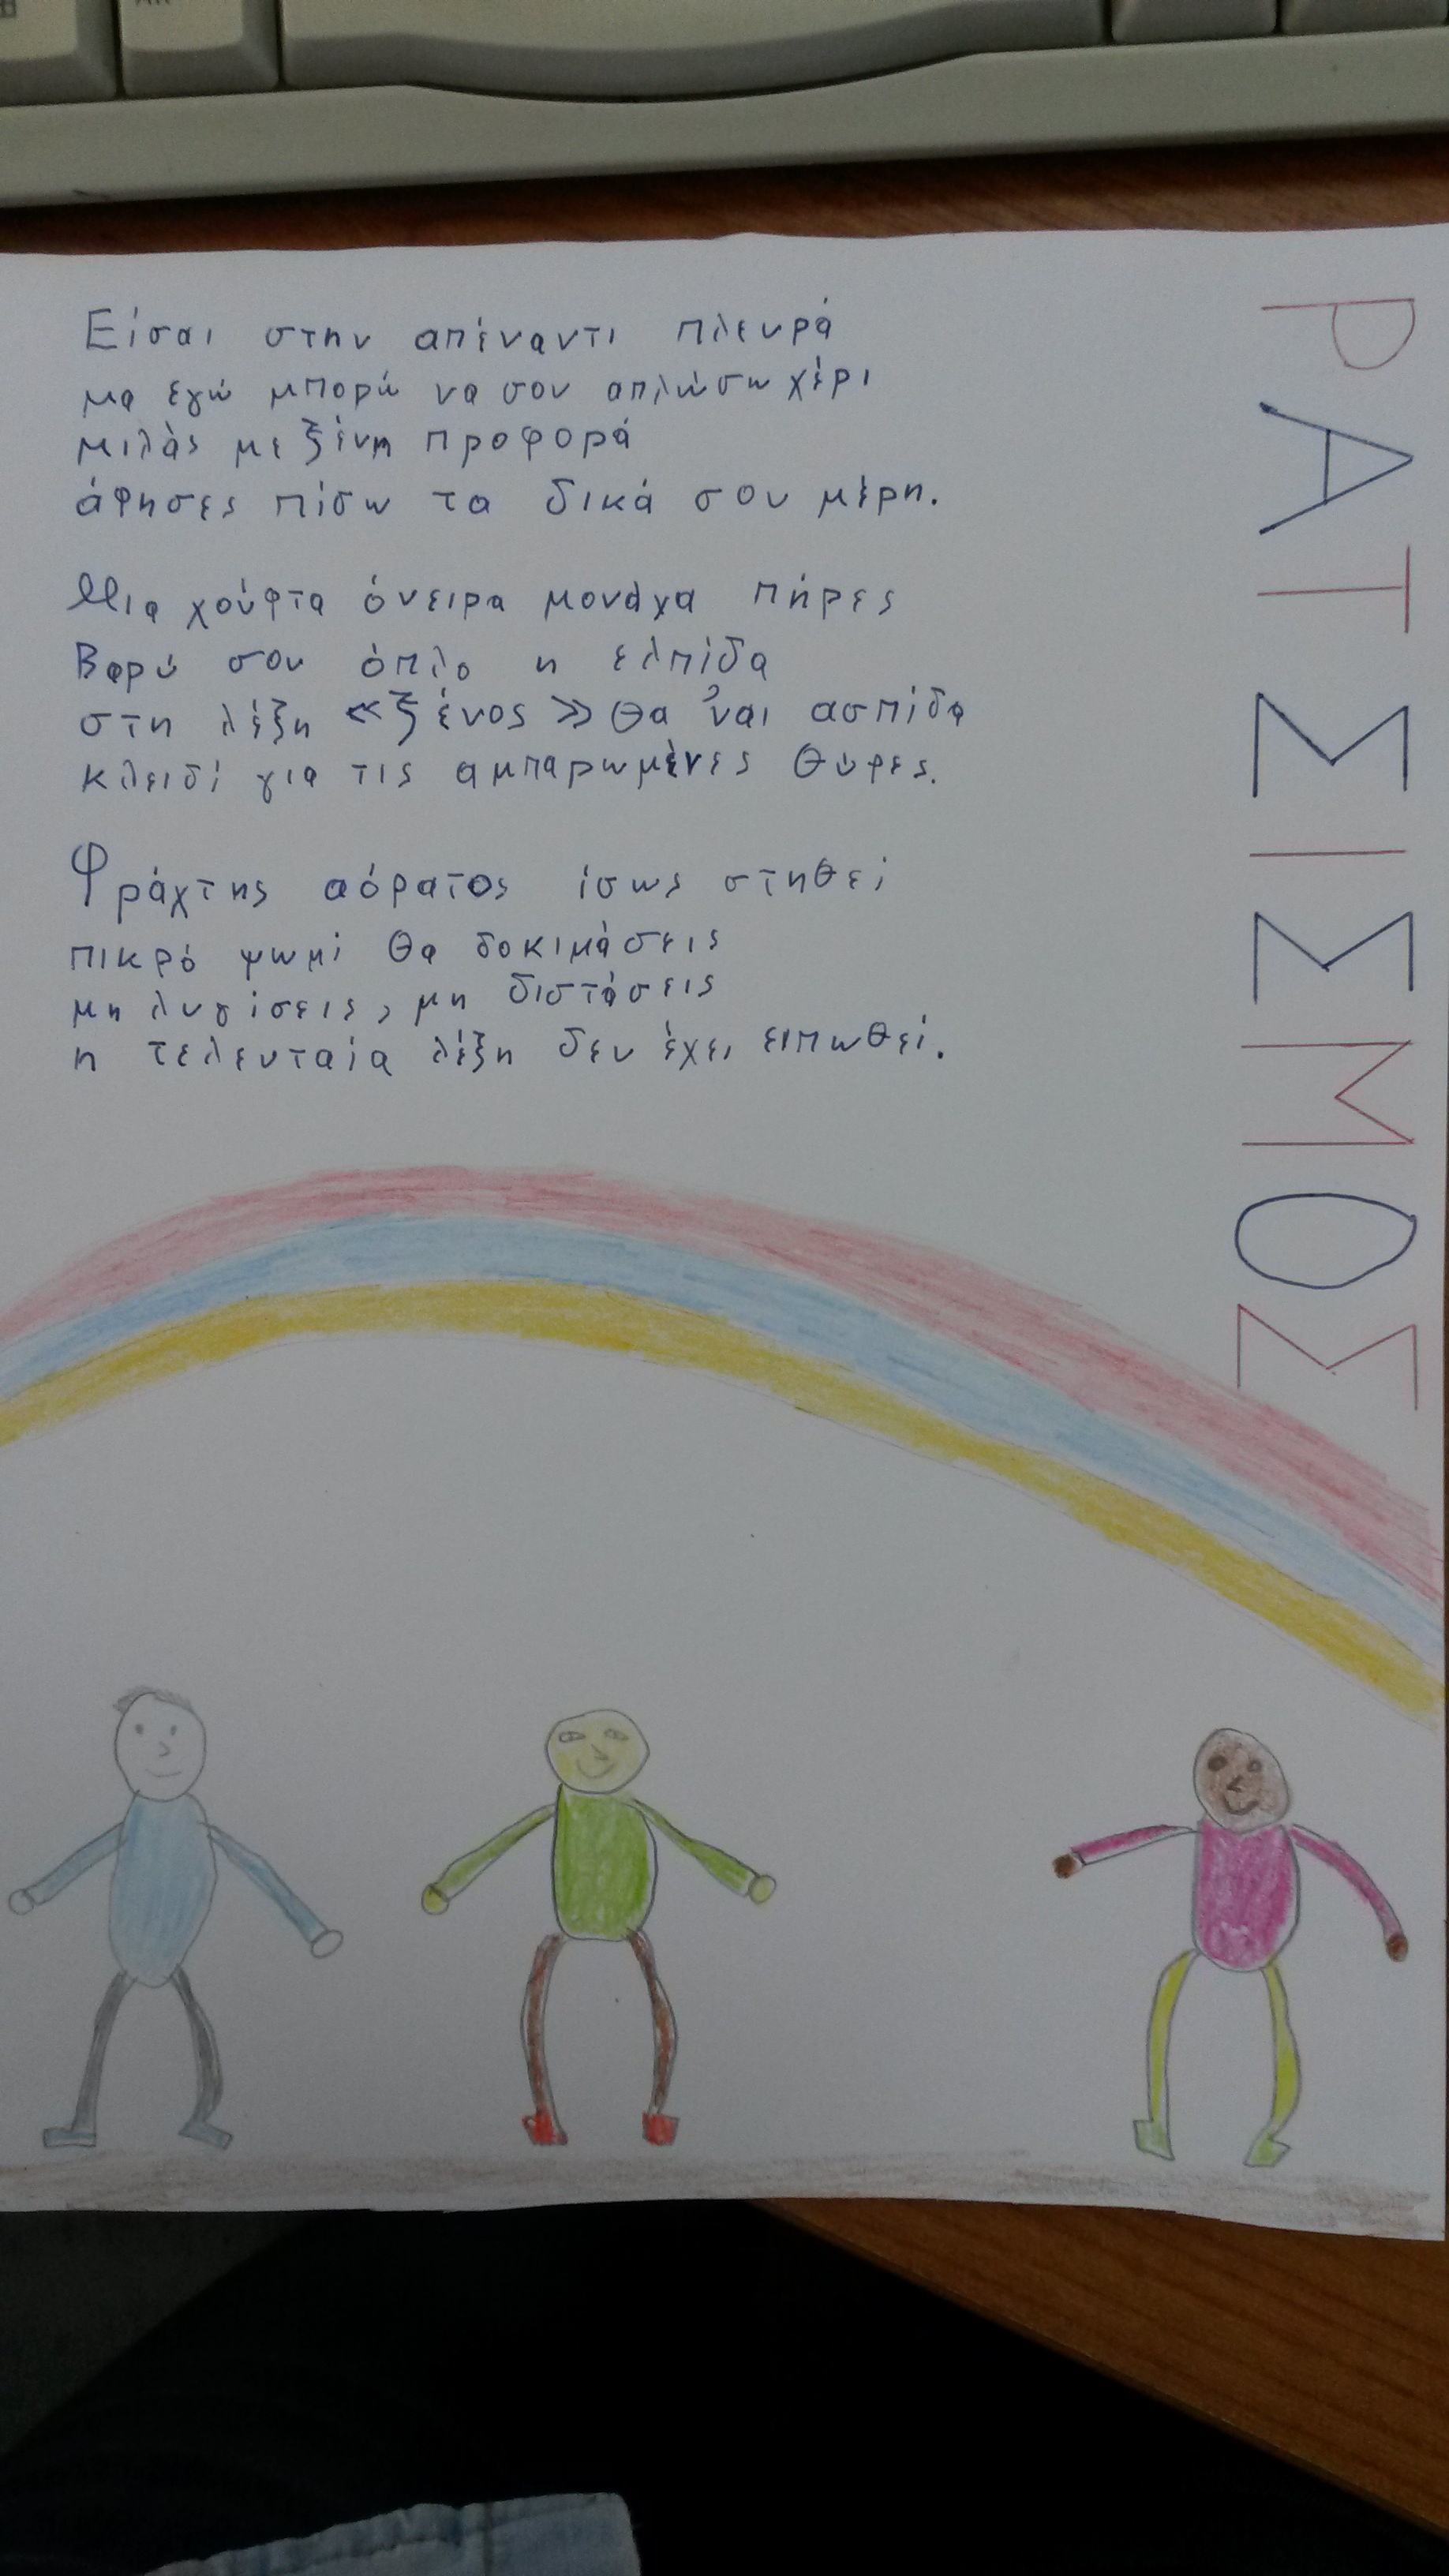 Είσαι στην απέναντι πλευρά
μα εγώ μπορώ να σου απλώσω χέρι
μιλάς με ξένη προφορά
άφησες πίσω τα δικά σου μέρη.
Μια χούφτα όνειρα μονάχα πήρες
Βαρύ σου όπλο η ελπίδα
στη λέξη «ξένος» θα 'ναι ασπίδα
κλειδί για τις αμπαρωμένες θύρες.
Φράχτης αόρατος ίσως στηθεί
πικρό ψωμί θα δοκιμάσεις
μη λυγίσεις, μη διστάσεις
η τελευταία λέξη δεν έχει ειπωθεί.
ΡΑΤΣΙΣΜΟΣ